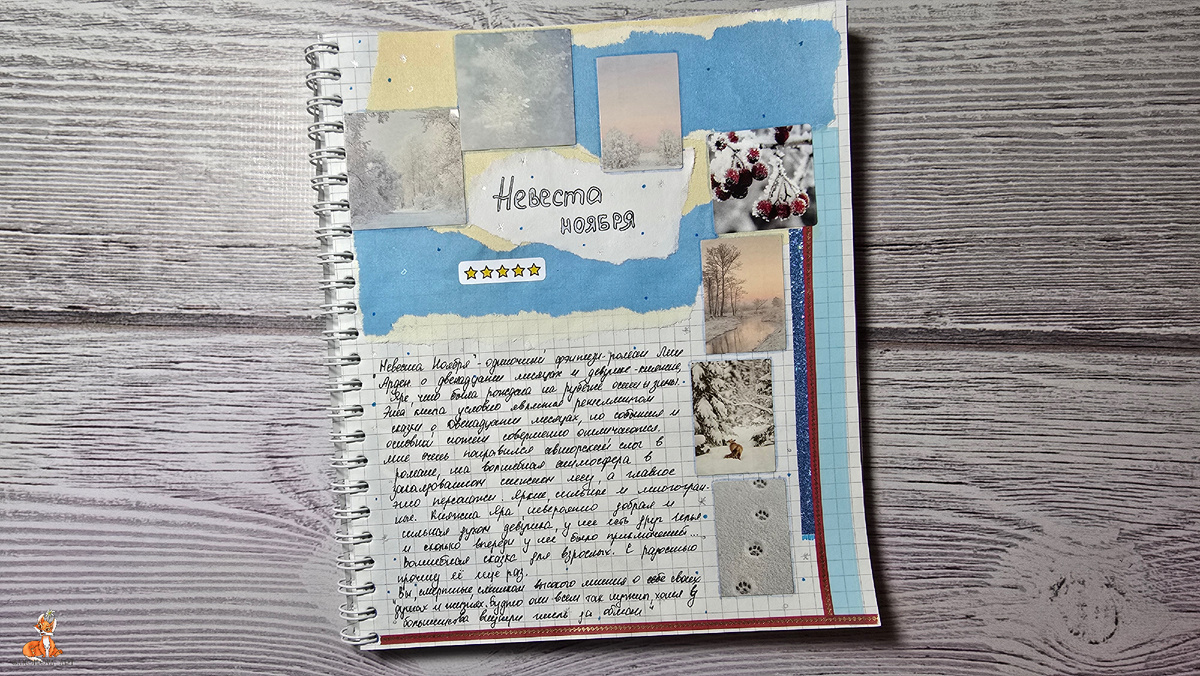 Невеста
ноября
"Невеста Ноября" - одиночный фэнтези-роман Лии
Арден о двенадцати месяцах и девушке-княжне
Яре, что была рождена на рубеже осени и зимы.
Эта книга условно является ретеллингом
сказки о двенадцати месяцах, но события и
основной
совершенно отличаются.
Мне очень понравился авторский слог в
романе, та волшебная атмосфера в
заколдованном снежном лесу, а главное
это персонажи. Яркие, сильные и многогран-
ные. Княжна Яра, невероятно добрая и
сильная духом девушка, у нее есть друг
и сколько впереди у нее было приключений...
Волшебная сказка для взрослых. С радостью
прочту её еще раз.
"Вы, смертные, слишком высокого мнения о себе своих
душах и жизнях, будто они всем так нужны, хотя у
большинства внутри